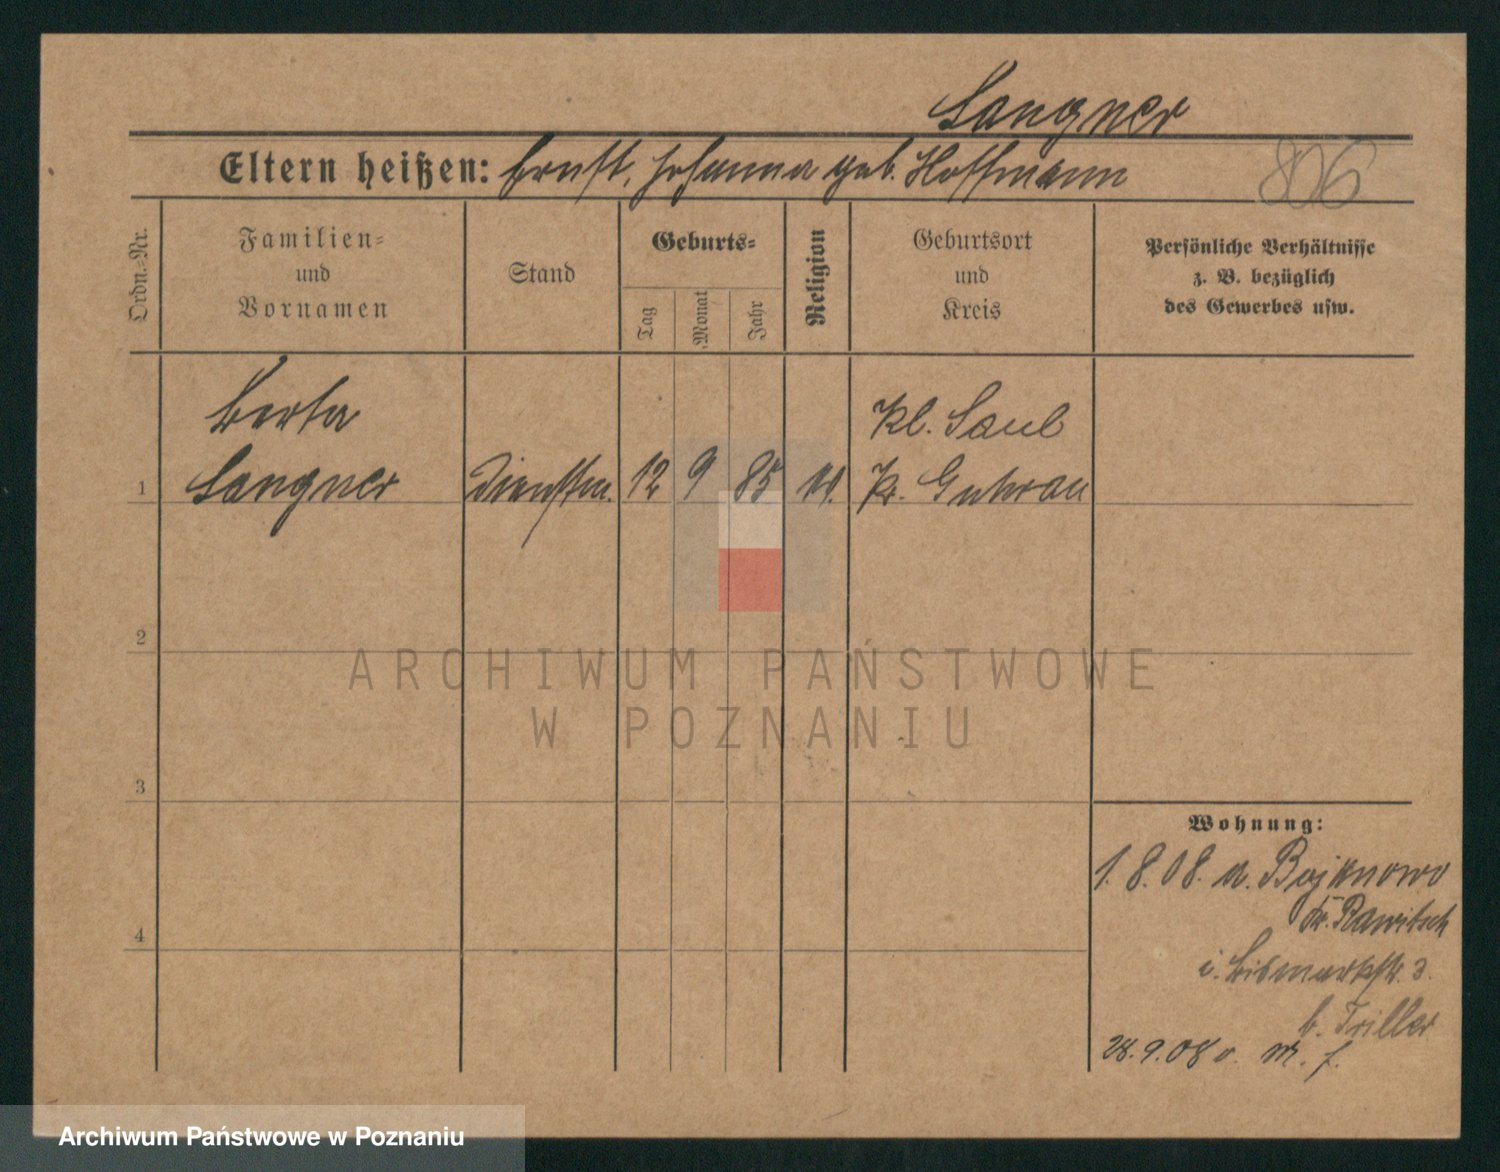 Langner
Eltern heißen: Ernst, Johanna geb. Hoffmann
806
Ordn.-Nr.
Familien-
und
Vornamen
Stand
Geburts-
Tag
Monat
Jahr
Religion
Geburtsort
und
Kreis
Persönliche Verhältnisse
z. B. bezüglich
des Gewerbes usw.
Berta
Kl. Saul
1 Langner Dienstm. 12 9 85 Kr. Guhrau
2
3
4
Wohnung:
1.8.08. a. Bojanowo
Kr. Rawitsch
i. Bismarckstr. 3.
b. Triller
28.9.08
ARCHIWUM PAŃSTWOWE
W POZNANIU
Archiwum Państwowe w Poznaniu